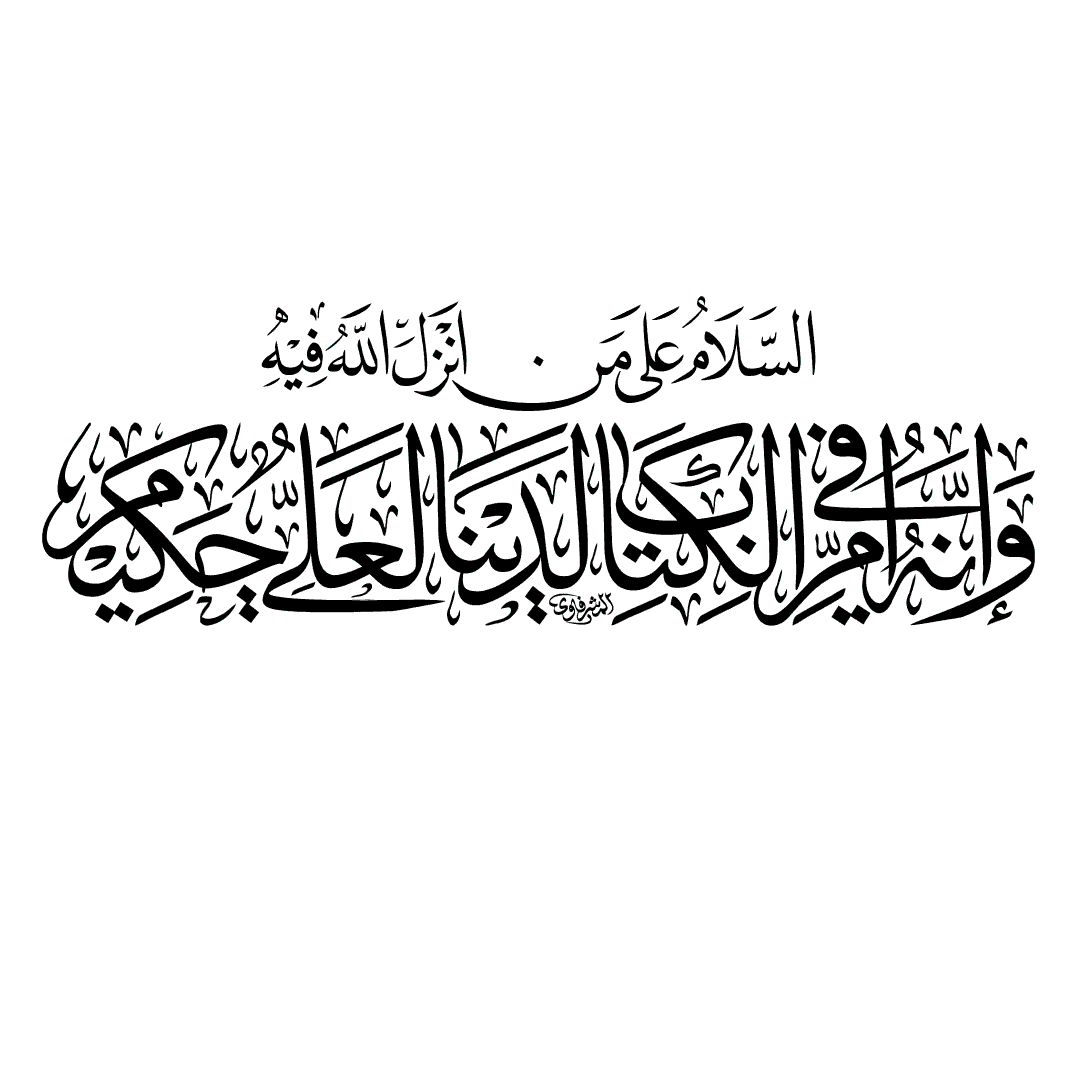 السَّلَامُ عَلَى مَن انْزَلَ اللَّهُ فِيْهِ
وَإِنَّهُ فِي أُمِّ الْكِتَابِ لَدَيْنَا لَعَلِيٌّ حَكِيمٌ
المشرفاوي